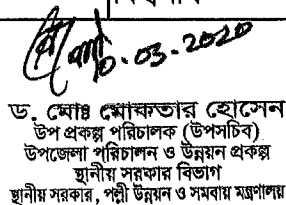 10.03.2020
ড. মোঃ মোকতার হোসেন
উপ প্রকল্প পরিচালক (উপসচিব)
উপজেলা পরিচালন ও উন্নয়ন প্রকল্প
স্থানীয় সরকার বিভাগ
স্থানীয় সরকার, পল্লী উন্নয়ন ও সমবায় মন্ত্রণালয়